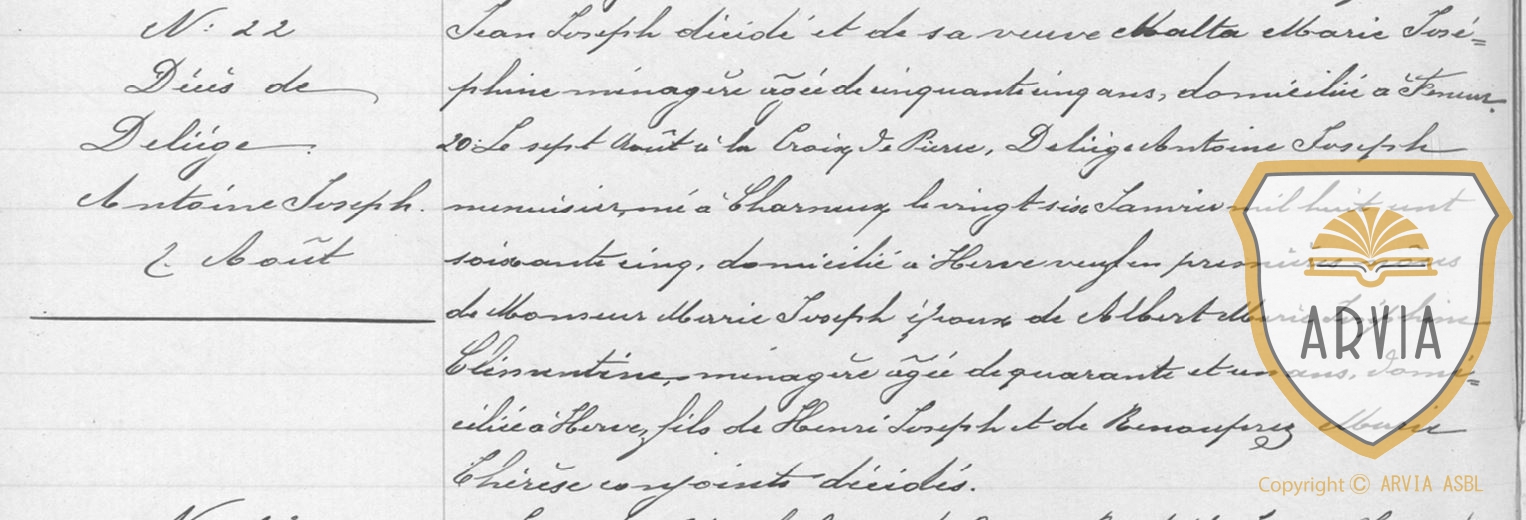 N: 22
Décès de
Deliége.
Antoine Joseph.
7. Août
Jean Joseph décédé et de sa veuve Malta Marie José=
phine ménagère âgée de cinquante cinq ans, domiciliée à Feneur.
20: Le sept Août à la Croix de Pierre, Deliége Antoine Joseph
menuisier, né à Charneux le vingt six Janvier mil huit cent
soixante cinq, domicilié à Herve veuf en premières nôces
de Monseur Marie Joseph époux de Albert Marie Joséphine
Clémentine, ménagère âgée de quarante et un ans, domi=
ciliée à Herve, fils de Henri Joseph et de Renauprez Marie
Thérèse conjoints décédés.
ARVIA
Copyright © ARVIA ASBL